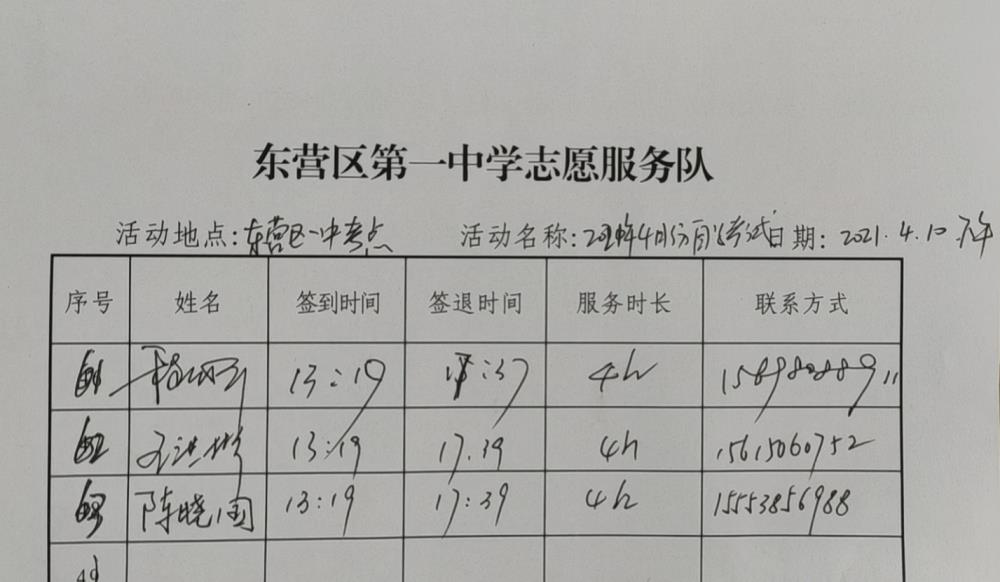 东营区第一中学志愿服务队
活动地点：东营区一中考点 活动名称：2021年4月份自学考试 日期：2021.4.10 下午
序号 姓名 签到时间 签退时间 服务时长 联系方式
13:19 17:37 4h
13:19 17.39 4h 15615060752
陈晓国 13:19 17:39 4h 15553856988